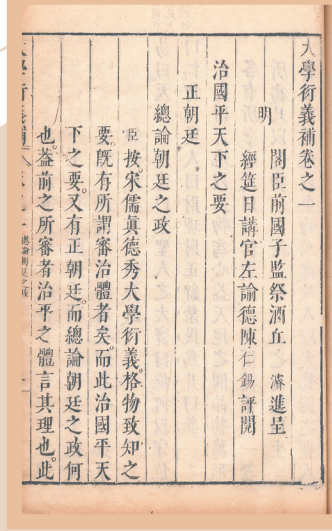 大學衍義補卷之一
明 閣臣前國子監祭酒丘 濬進呈
經筵日講官左諭德陳仁錫評閱
治國平天下之要
正朝廷
總論朝廷之政
臣按宋儒真德秀大學衍義格物致知之
要既有所謂審治體者矣而此治國平天
下之要又有正朝廷而總論朝廷之政何
也蓋前之所審者治平之體言其理也此
大學衍義補
總論朝廷之政